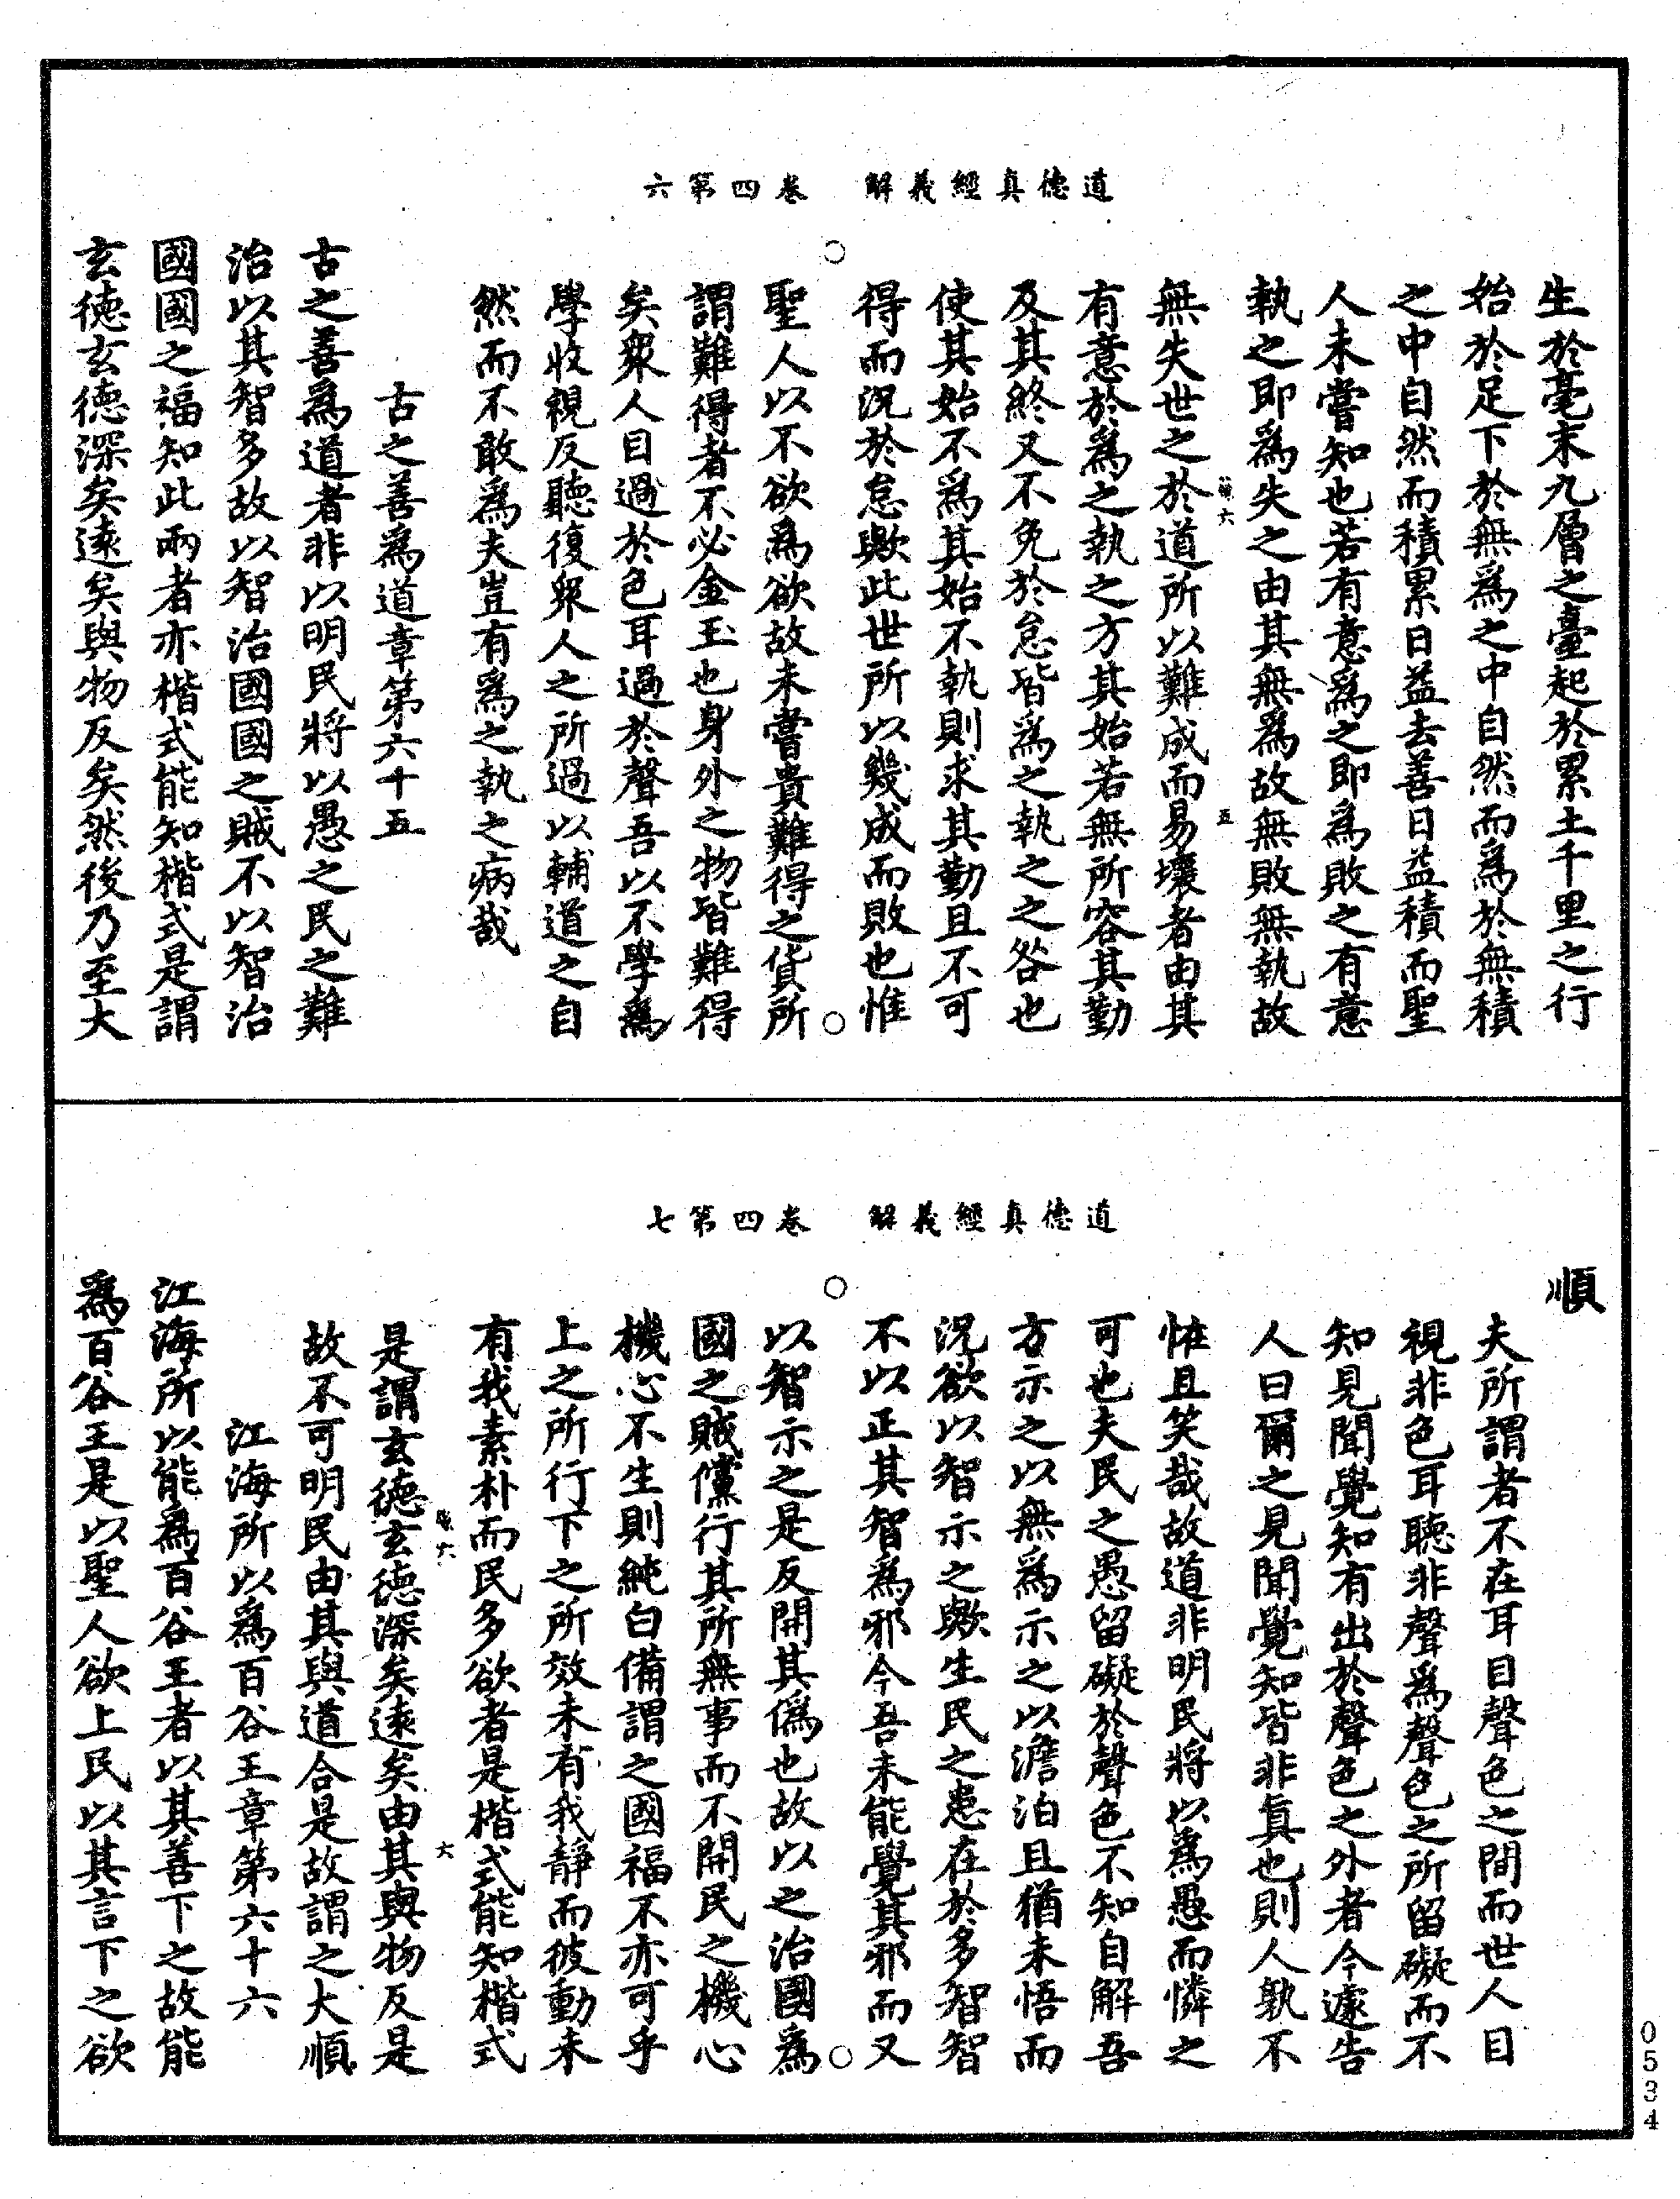 道德真經義解　卷四第六
生於毫末九層之臺起於累土千里之行
始於足下於無為之中自然而為於無積
之中自然而積累日益去善日益積而聖
人未嘗知也若有意為之即為敗之有意
執之即為失之由其無為故無敗無執故
無失世之於道所以難成而易壞者由其
有意於為之執之方其始若無所容其勤
及其終又不免於怠皆為之執之之咎也
使其始不為其始不執則求其勤且不可
得而況於怠歟此世所以幾成而敗也惟
聖人以不欲為欲故未嘗貴難得之貨所
謂難得者不必金玉也身外之物皆難得
矣眾人目過於色耳過於聲吾以不學為
學收視反聽復眾人之所過以輔道之自
然而不敢為夫豈有為之執之病哉
古之善為道章第六十五
古之善為道者非以明民將以愚之民之難
治以其智多故以智治國國之賊不以智治
國國之福知此兩者亦楷式能知楷式是謂
玄德玄德深矣遠矣與物反矣然後乃至大
道德真經義解　卷四第七
順
夫所謂者不在耳目聲色之間而世人目
視非色耳聽非聲為聲色之所留礙而不
知見聞覺知有出於聲色之外者今遽告
人曰爾之見聞覺知皆非真也則人孰不
恠且笑哉故道非明民將以為愚而憐之
可也夫民之愚留礙於聲色不知自解吾
方示之以無為示之以澹泊且猶未悟而
況欲以智示之歟生民之患在於多智智
不以正其智為邪今吾未能覺其邪而又
以智示之是反開其偽也故以之治國為
國之賊儻行其所無事而不開民之機心
機心不生則純白備謂之國福不亦可乎
上之所行下之所效未有我靜而彼動未
有我素朴而民多欲者是楷式能知楷式
是謂玄德玄德深矣遠矣由其與物反是
故不可明民由其與道合是故謂之大順
江海所以為百谷王章第六十六
江海所以能為百谷王者以其善下之故能
為百谷王是以聖人欲上民以其言下之欲
0534